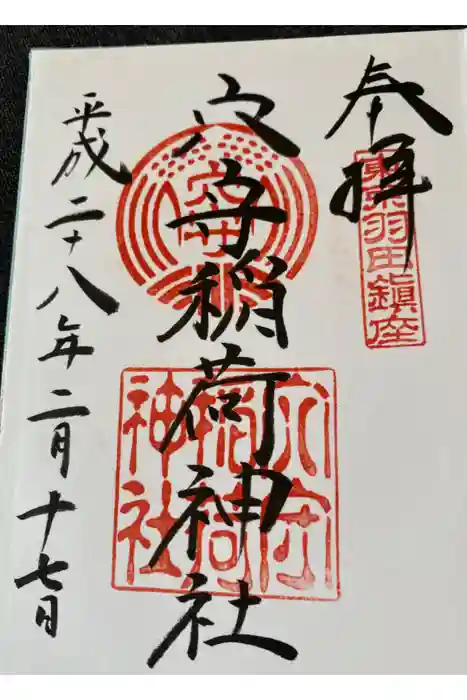 奉拝
東京羽田鎮座
穴守稲荷神社
穴守
穴守
稲荷
神社
平成二十八年二月十七日